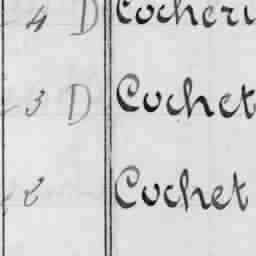 4 D Cocheri
3 D Cochet
2 Cochet